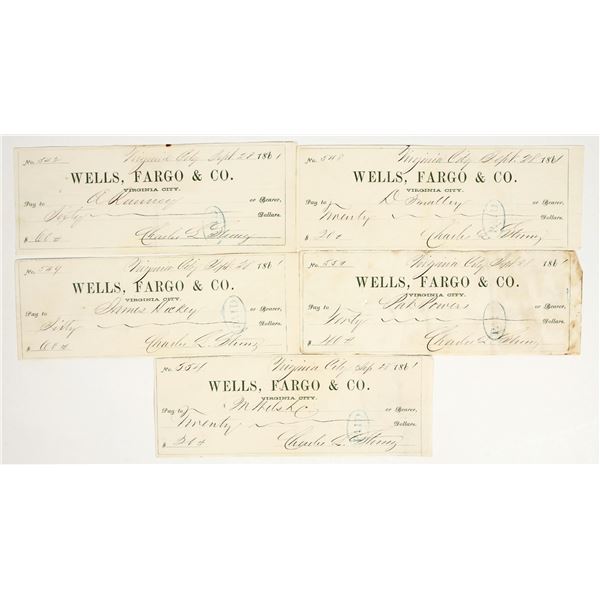 No. 542 Virginia City Sept. 28 1861
WELLS, FARGO & CO.
VIRGINIA CITY.
Pay to or Bearer,
Dollars.
$ 60 Charles L. Strong
No. 548 Virginia City Sept. 28 1861
WELLS, FARGO & CO.
VIRGINIA CITY.
Pay to D Smalley or Bearer,
Twenty Dollars.
$ 20 Charles L. Strong
PAID
No. 549 Virginia City Sept 28 1861
WELLS, FARGO & CO.
VIRGINIA CITY.
Pay to James Hickey or Bearer,
Sixty Dollars.
$ 60 Charles L. Strong
PAID
No. 550 Virginia City Sept 1861
WELLS, FARGO & CO.
VIRGINIA CITY.
Pay to Pat Powers or Bearer,
Forty Dollars.
$ 40 Charles L. Strong
No. 554 Virginia City Sep 28 1861
WELLS, FARGO & CO.
VIRGINIA CITY.
Pay to or Bearer,
Twenty Dollars.
$ 20 Charles L. Strong
PAID